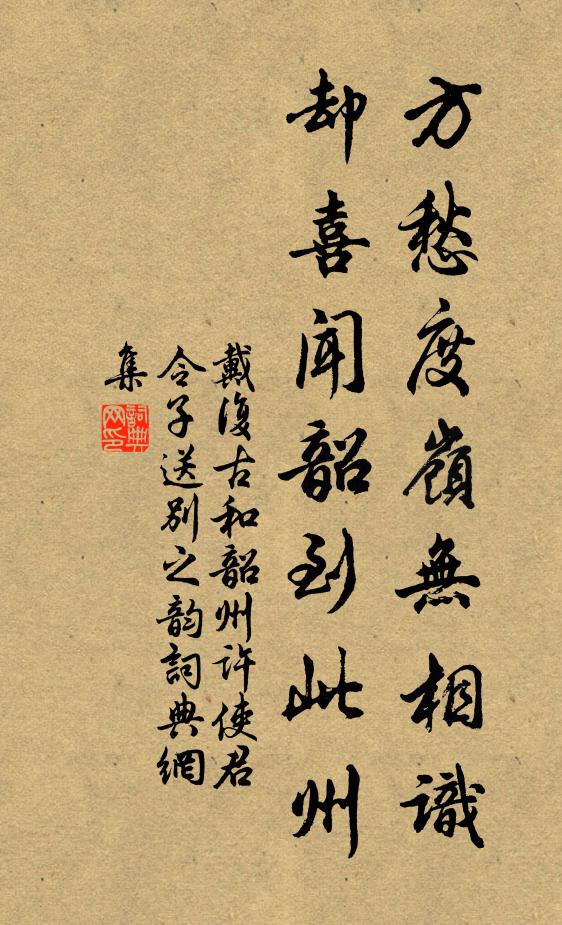 方愁度嶺無相識
却喜聞韶到此州
戴復古和韶州許使君
令子送別之韵詞典網
集
詞典
网印